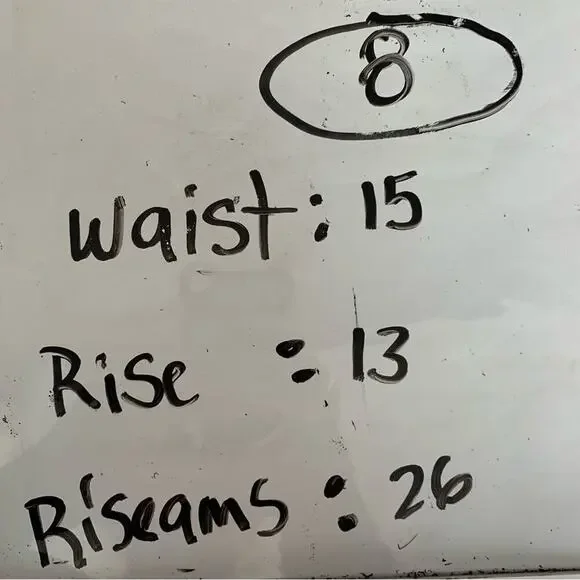 8
Waist: 15
Rise : 13
Riseams: 26